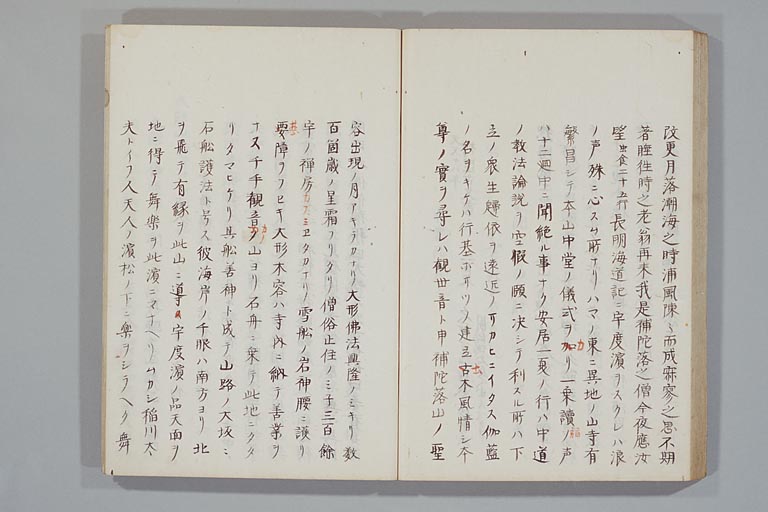 改更月落潮海之時浦風陳々而成寂寥之思不期
着睚往時之老翁再来我是補陀落之僧今夜應汝
望虫食二十五行長明海道記ニ宇度濱ヲスクレハ浪
ノ声殊ニ心スム所ナリハマノ東ニ異地ノ山寺有
繁昌シテ本山中堂ノ儀式ヲ加リ一乗讀ノ声
ハ十二廻中ニ聞絶ル事ナク安居一夏ノ行ハ中道
ノ教法論説ヲ空假ノ頤ニ决シテ利スル所ハ下
立ノ衆生歸依ヲ遠近ノ
伽藍
ノ名ヲキケハ行基
ノ建立古木風情シ本
尊ノ實ヲ尋レハ観世音ト申補陀落山ノ聖
容出現ノ月アキラカナリ大形佛法興隆ノミキリ数
百箇歳ノ星霜フリタリ僧俗止住ノミキ三百餘
宇ノ禅房
ナリノ雪船ノ岩神腰ニ護リ
要障ヲ
大形本容ハ寺内ニ納テ善業ヲ
ナス千手觀音
山ヨリ石舟ニ乗テ此地ニクタ
リタマヒケリ其船善神ト成テ山路ノ大坂ニ
石船護法ト号ス彼海岸ノ千眼ハ南方ヨリ北
ヲ飛テ有縁ヲ此山ニ導
宇度濱ノ品天面ヲ
地ニ得テ舞樂ヲ此濱ニマナヘリムカシ稲川大
夫トイフ人天人ノ濱松ノ下ニ樂ヲシラヘテ舞